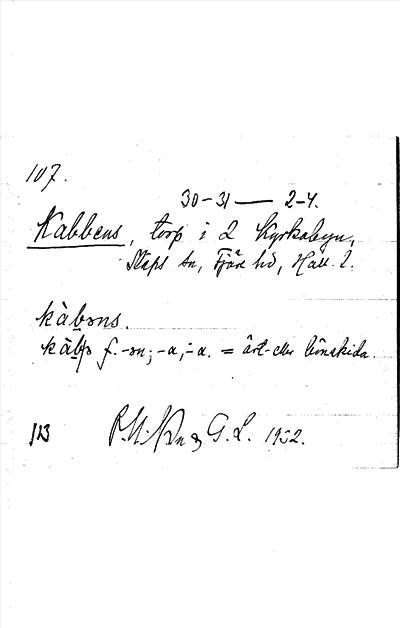 107.
30-31 — 2-4.
Kabbens, torp i 2 Kyrkobyn,
Släps sn, Fjäre hd, Hall. l.
kàbəns.
f. -ən; -a, -a. = ärt- eller bönskida.
113 G. L. 1932.